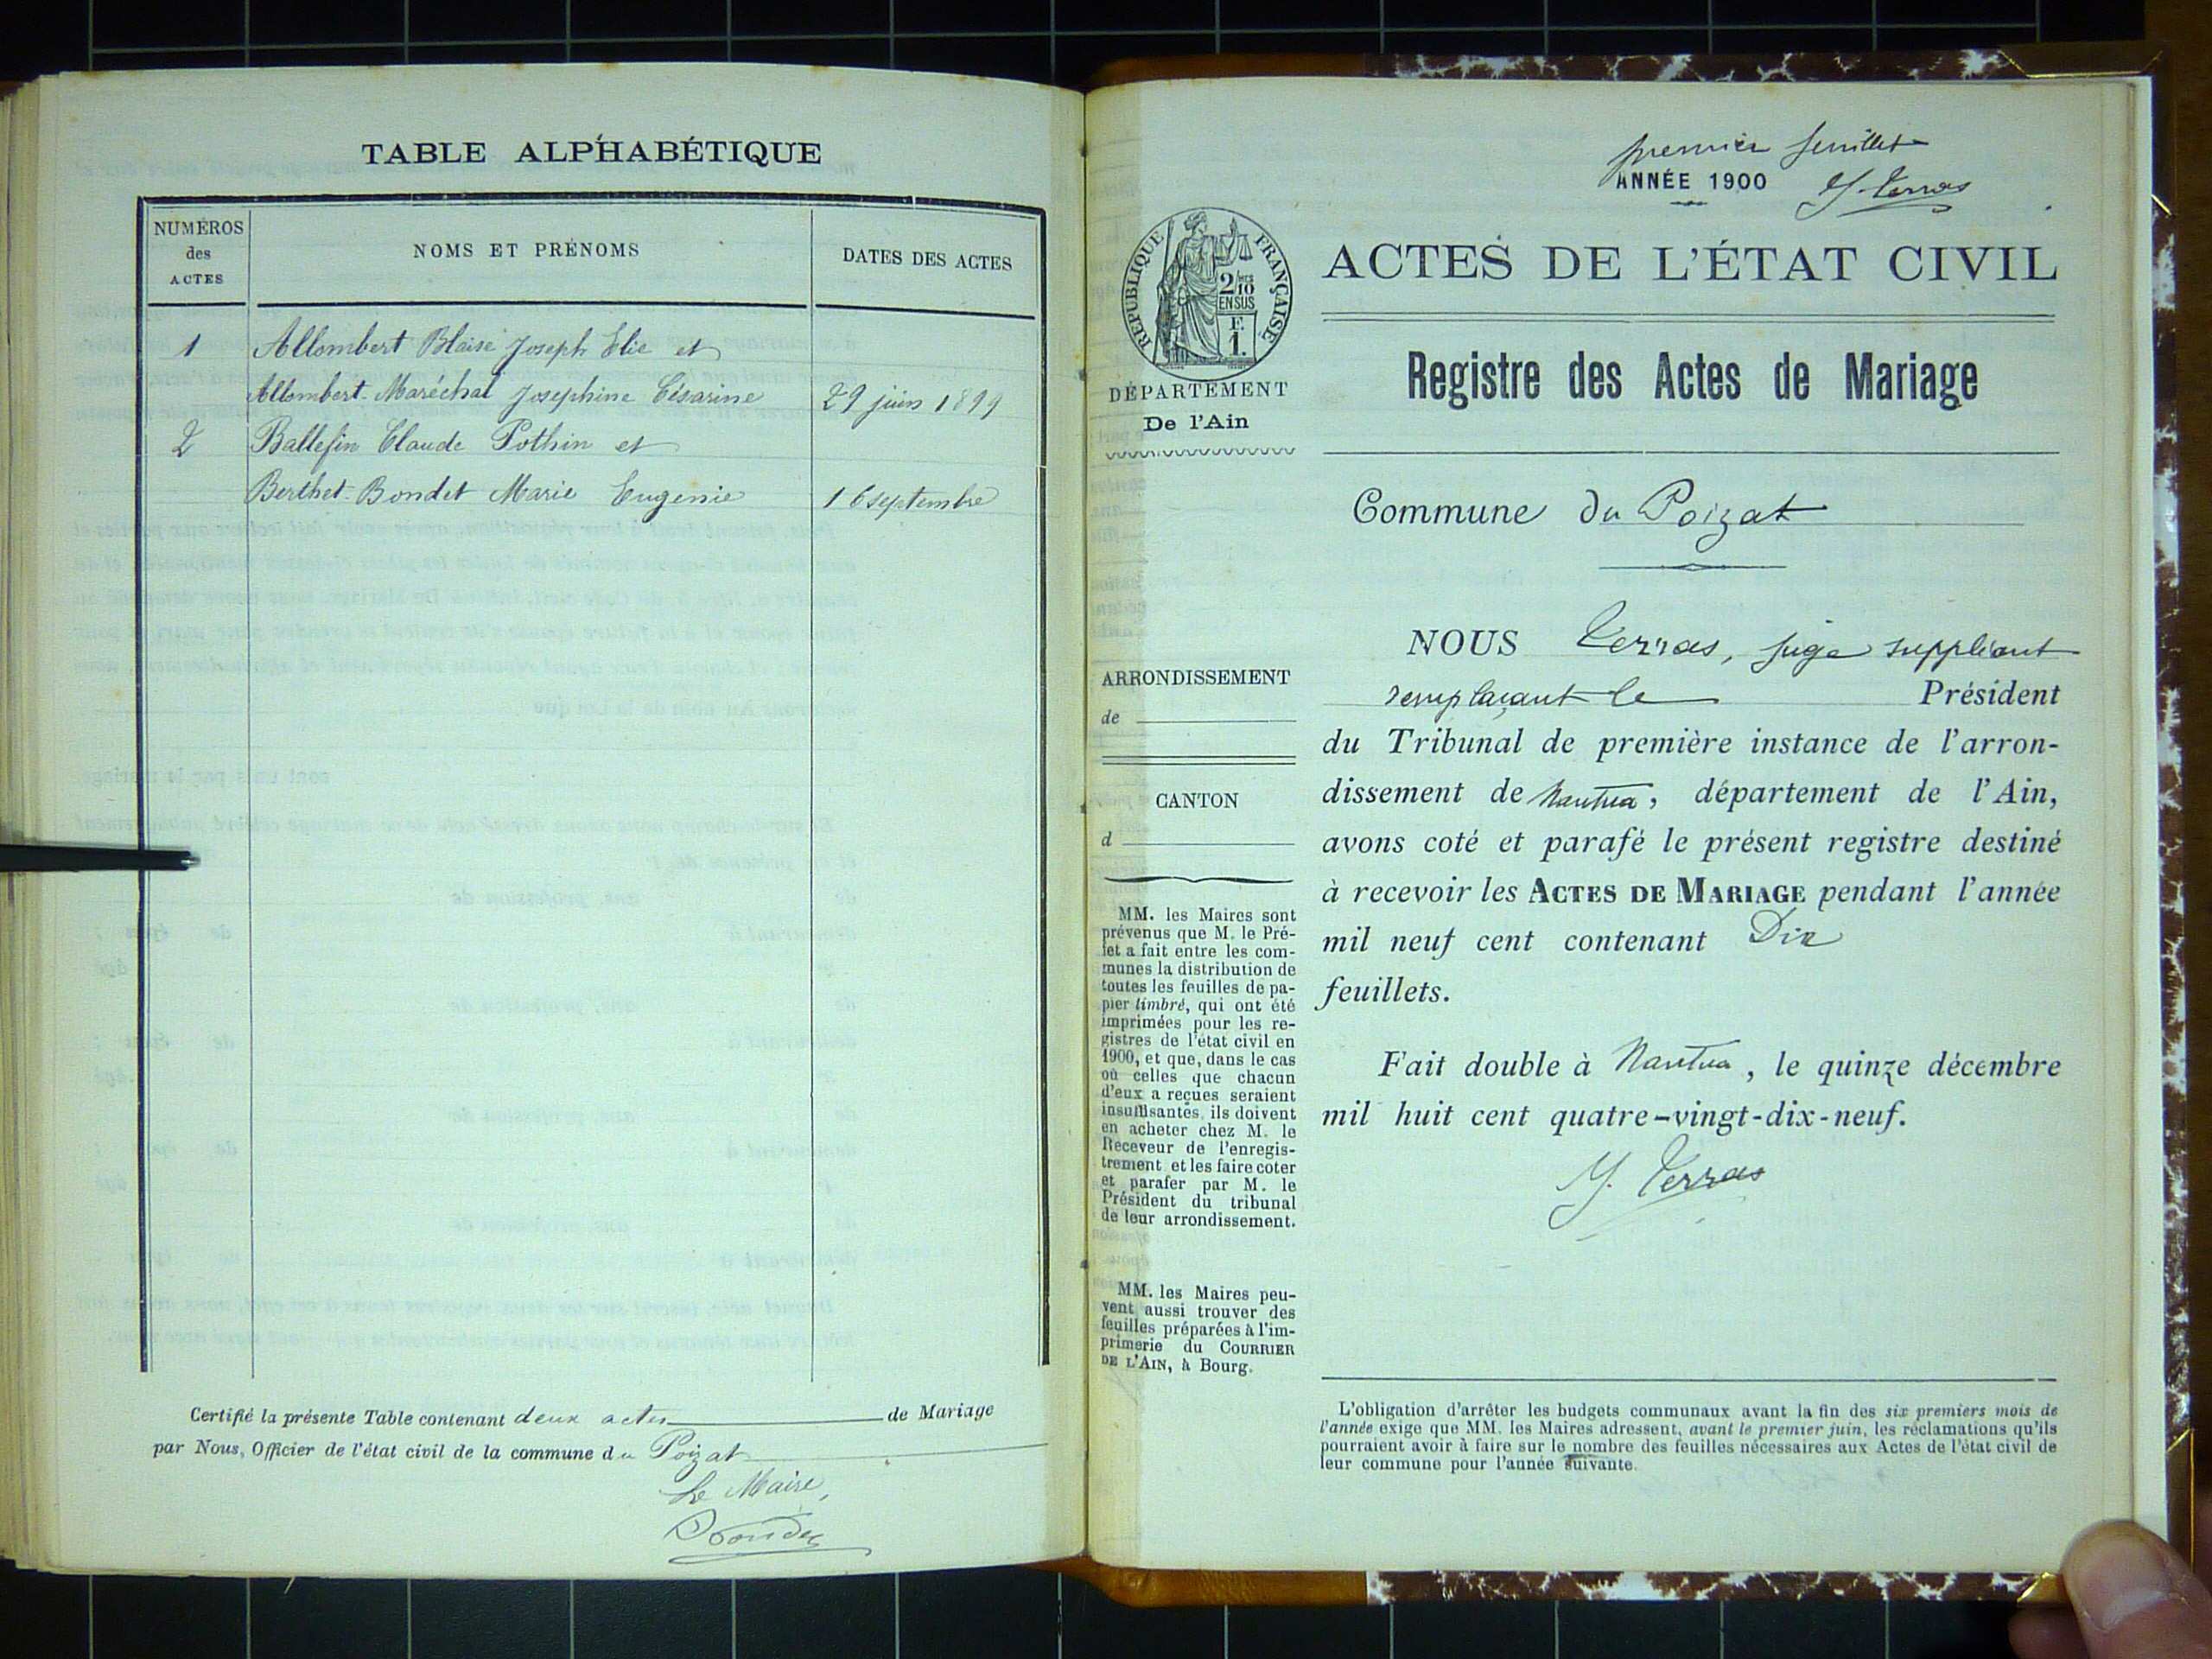 TABLE ALPHABÉTIQUE
NUMÉROS
des
ACTES
NOMS ET PRÉNOMS
DATES DES ACTES
1 Allombert Blaise Joseph Elie et
Allombert-Maréchal Josephine Césarine 29 juin 1899
2 Ballefin Claude Pothin et
Berthet-Bondet Marie Eugenie 16 septembre
Certifié la présente Table contenant deux actes de Mariage
par Nous, Officier de l'état civil de la commune du Poizat
Le Maire,
premier feuillet
ANNÉE 1900 Y. Terras
RÉPUBLIQUE FRANÇAISE
2/10
EN SUS
F.
1.
DÉPARTEMENT
De l'Ain
ACTES DE L'ÉTAT CIVIL
Registre des Actes de Mariage
Commune du Poizat
ARRONDISSEMENT
de
CANTON
d
MM. les Maires sont
prévenus que M. le Pré-
fet a fait entre les com-
munes la distribution de
toutes les feuilles de pa-
pier timbré, qui ont été
imprimées pour les re-
gistres de l'état civil en
1900, et que, dans le cas
où celles que chacun
d'eux a reçues seraient
insuffisantes, ils doivent
en acheter chez M. le
Receveur de l'enregis-
trement et les faire coter
et parafer par M. le
Président du tribunal
de leur arrondissement.
MM. les Maires peu-
vent aussi trouver des
feuilles préparées à l'im-
primerie du COURRIER
DE L'AIN, à Bourg.
NOUS Terras, juge suppléant
remplaçant le Président
du Tribunal de première instance de l'arron-
dissement de Nantua, département de l'Ain,
avons coté et parafé le présent registre destiné
à recevoir les ACTES DE MARIAGE pendant l'année
mil neuf cent contenant Dix
feuillets.
Fait double à Nantua, le quinze décembre
mil huit cent quatre-vingt-dix-neuf.
Y. Terras
L'obligation d'arrêter les budgets communaux avant la fin des six premiers mois de
l'année exige que MM. les Maires adressent, avant le premier juin, les réclamations qu'ils
pourraient avoir à faire sur le nombre des feuilles nécessaires aux Actes de l'état civil de
leur commune pour l'année suivante.